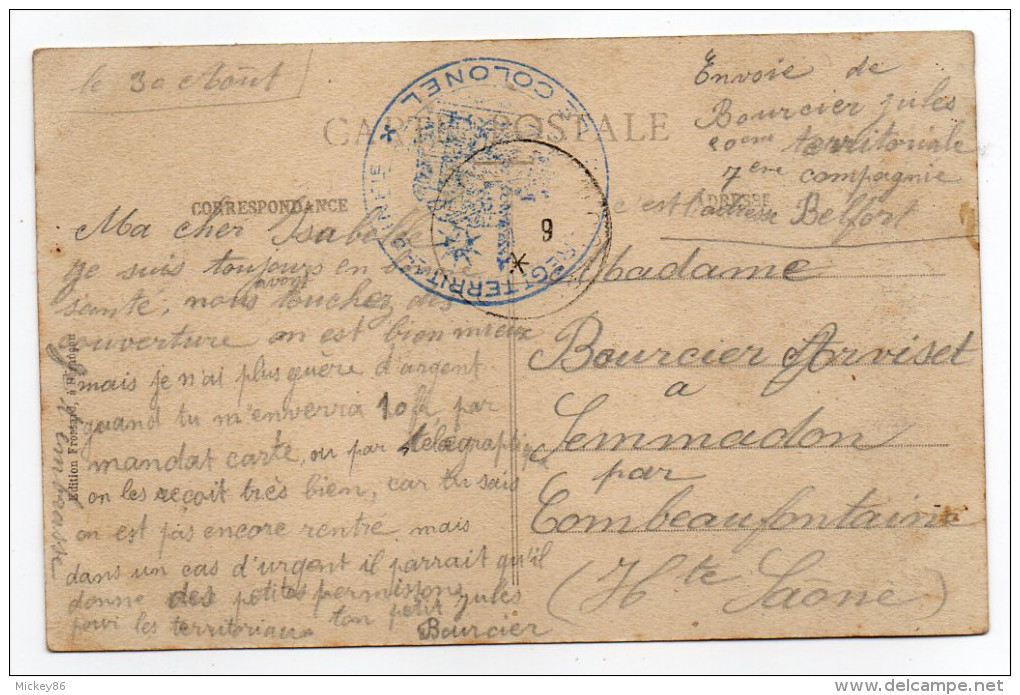 le 30 Aout
Envoie de
Bourcier Jules
territoriale
7eme compagnie
c'est l'adresse Belfort
CARTE POSTALE
CORRESPONDANCE
ADRESSE
LT COLONEL
REGT TERRITORIAL
9
Ma cher Isabelle
Je suis toujours en bonne
santé, nous avons touchez des
couverture on est bien mieux
mais je n'ai plus guère d'argent
quand tu m'enverra 10 par
mandat carte, ou par télégraphique
on les reçoit très bien, car tu sais
on est pas encore rentre mais
dans un cas d'urgant il parrait qu'il
donne des petites permissions
pour les territoriaux ton petit Jules
Bourcier
t'embrasse
Edition Frossard, à
Madame
Bourcier Arviset
a
Semmadon
par
Combeaufontaine
(Hte Saône)
Mickey86
delcampe.net